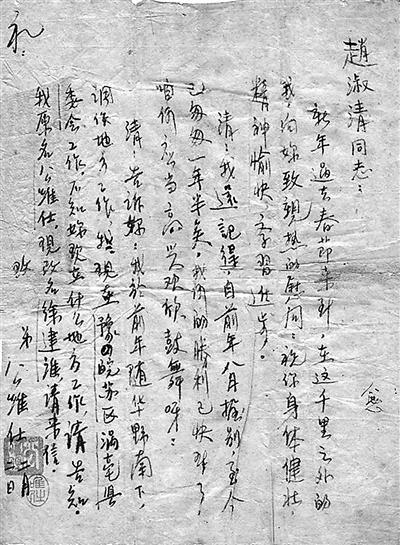 趙淑清同志：
新年過去春節來到，在这千里之外的
我，向妳致親热的慰问：祝你身体健壯，
精神愉快，学習進步。
清：我还記得，自前年八月握别，至今
已匆匆一年半矣，我們的勝利已快到了，
咱們应当高兴欢欣鼓舞呀！
清，告诉妳：我於前年随华野南下，
調作地方工作，我現在豫皖苏区涡亳县
委会工作，不知妳現在什么地方工作，请告知。
我原名公雄仕，現改名徐建淮，请来信。
致
礼
弟
公雄仕
二月
日